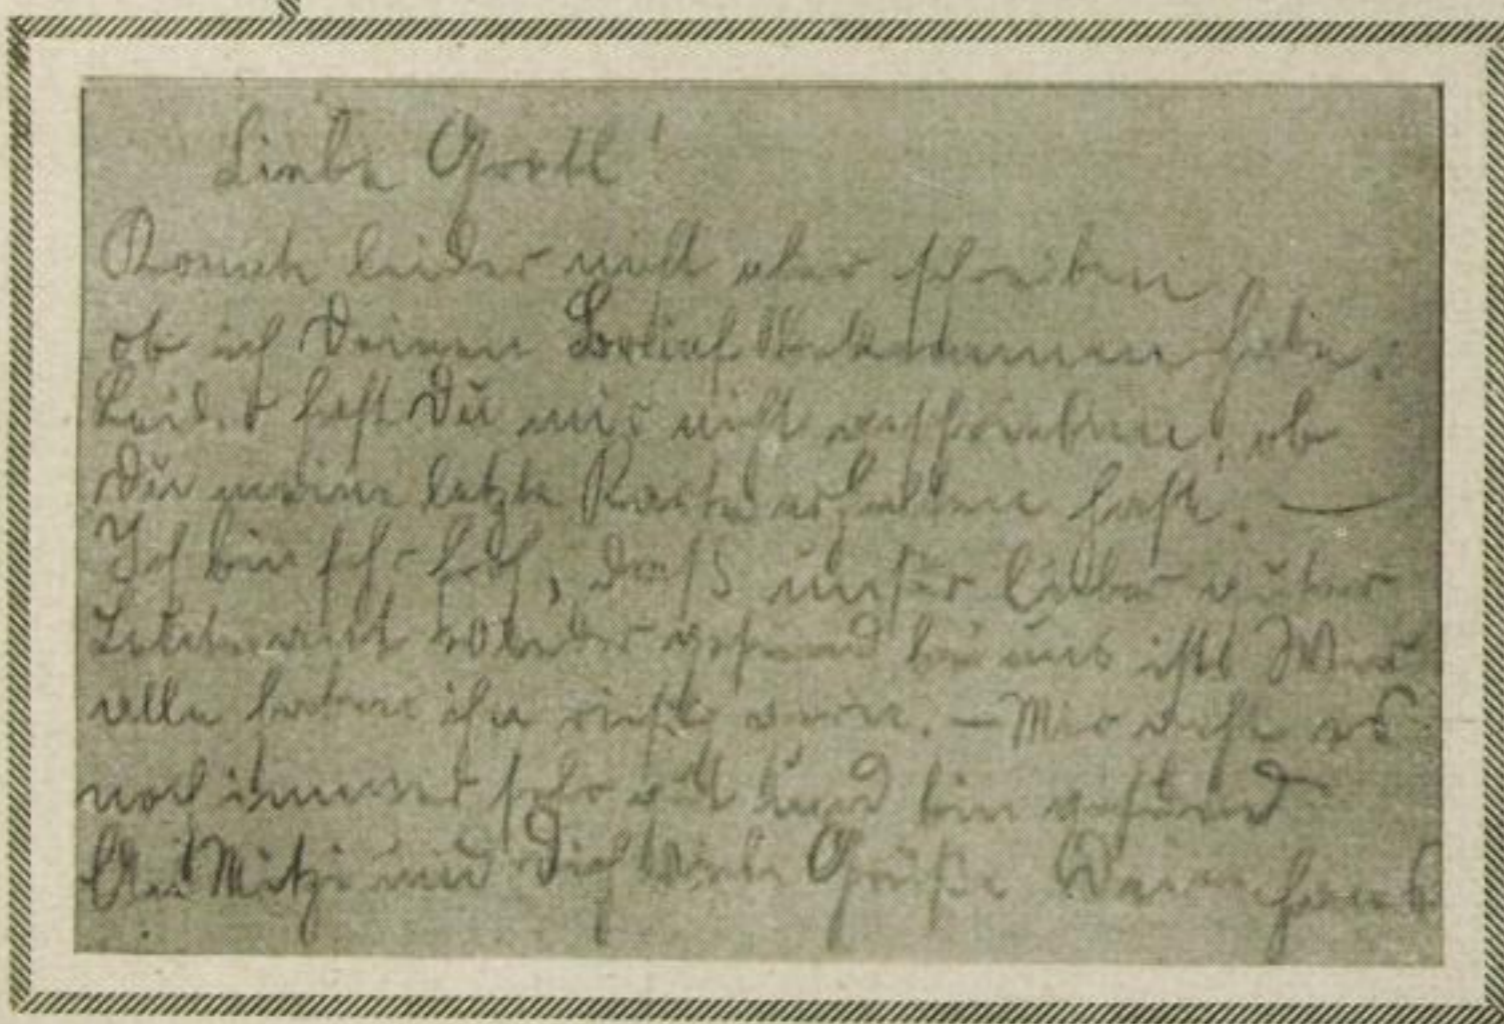 Liebe Gretl!
Konnte leider nicht eher schreiben
ob ich Deinen Brief bekommen habe.
Leider hast Du mir nicht geschrieben, ob
Du meine letzte Karte erhalten hast. —
Ich bin sehr froh, daß unser lieber guter
Leutnant wieder gesund bei uns ist! Wir
alle haben ihn recht gern. — Mir geht es
noch immer sehr gut und bin gesund
An Mitzi und Dich viele Grüße Dein Hans